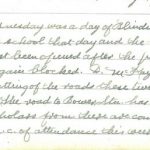 nesday was a day of Blindin
school that day and the
st been opened after the fr
again blocked. D. McKay
ttling of the roads these two
The road to Bower Stn has
holars from there are cons
c. of attendance this week